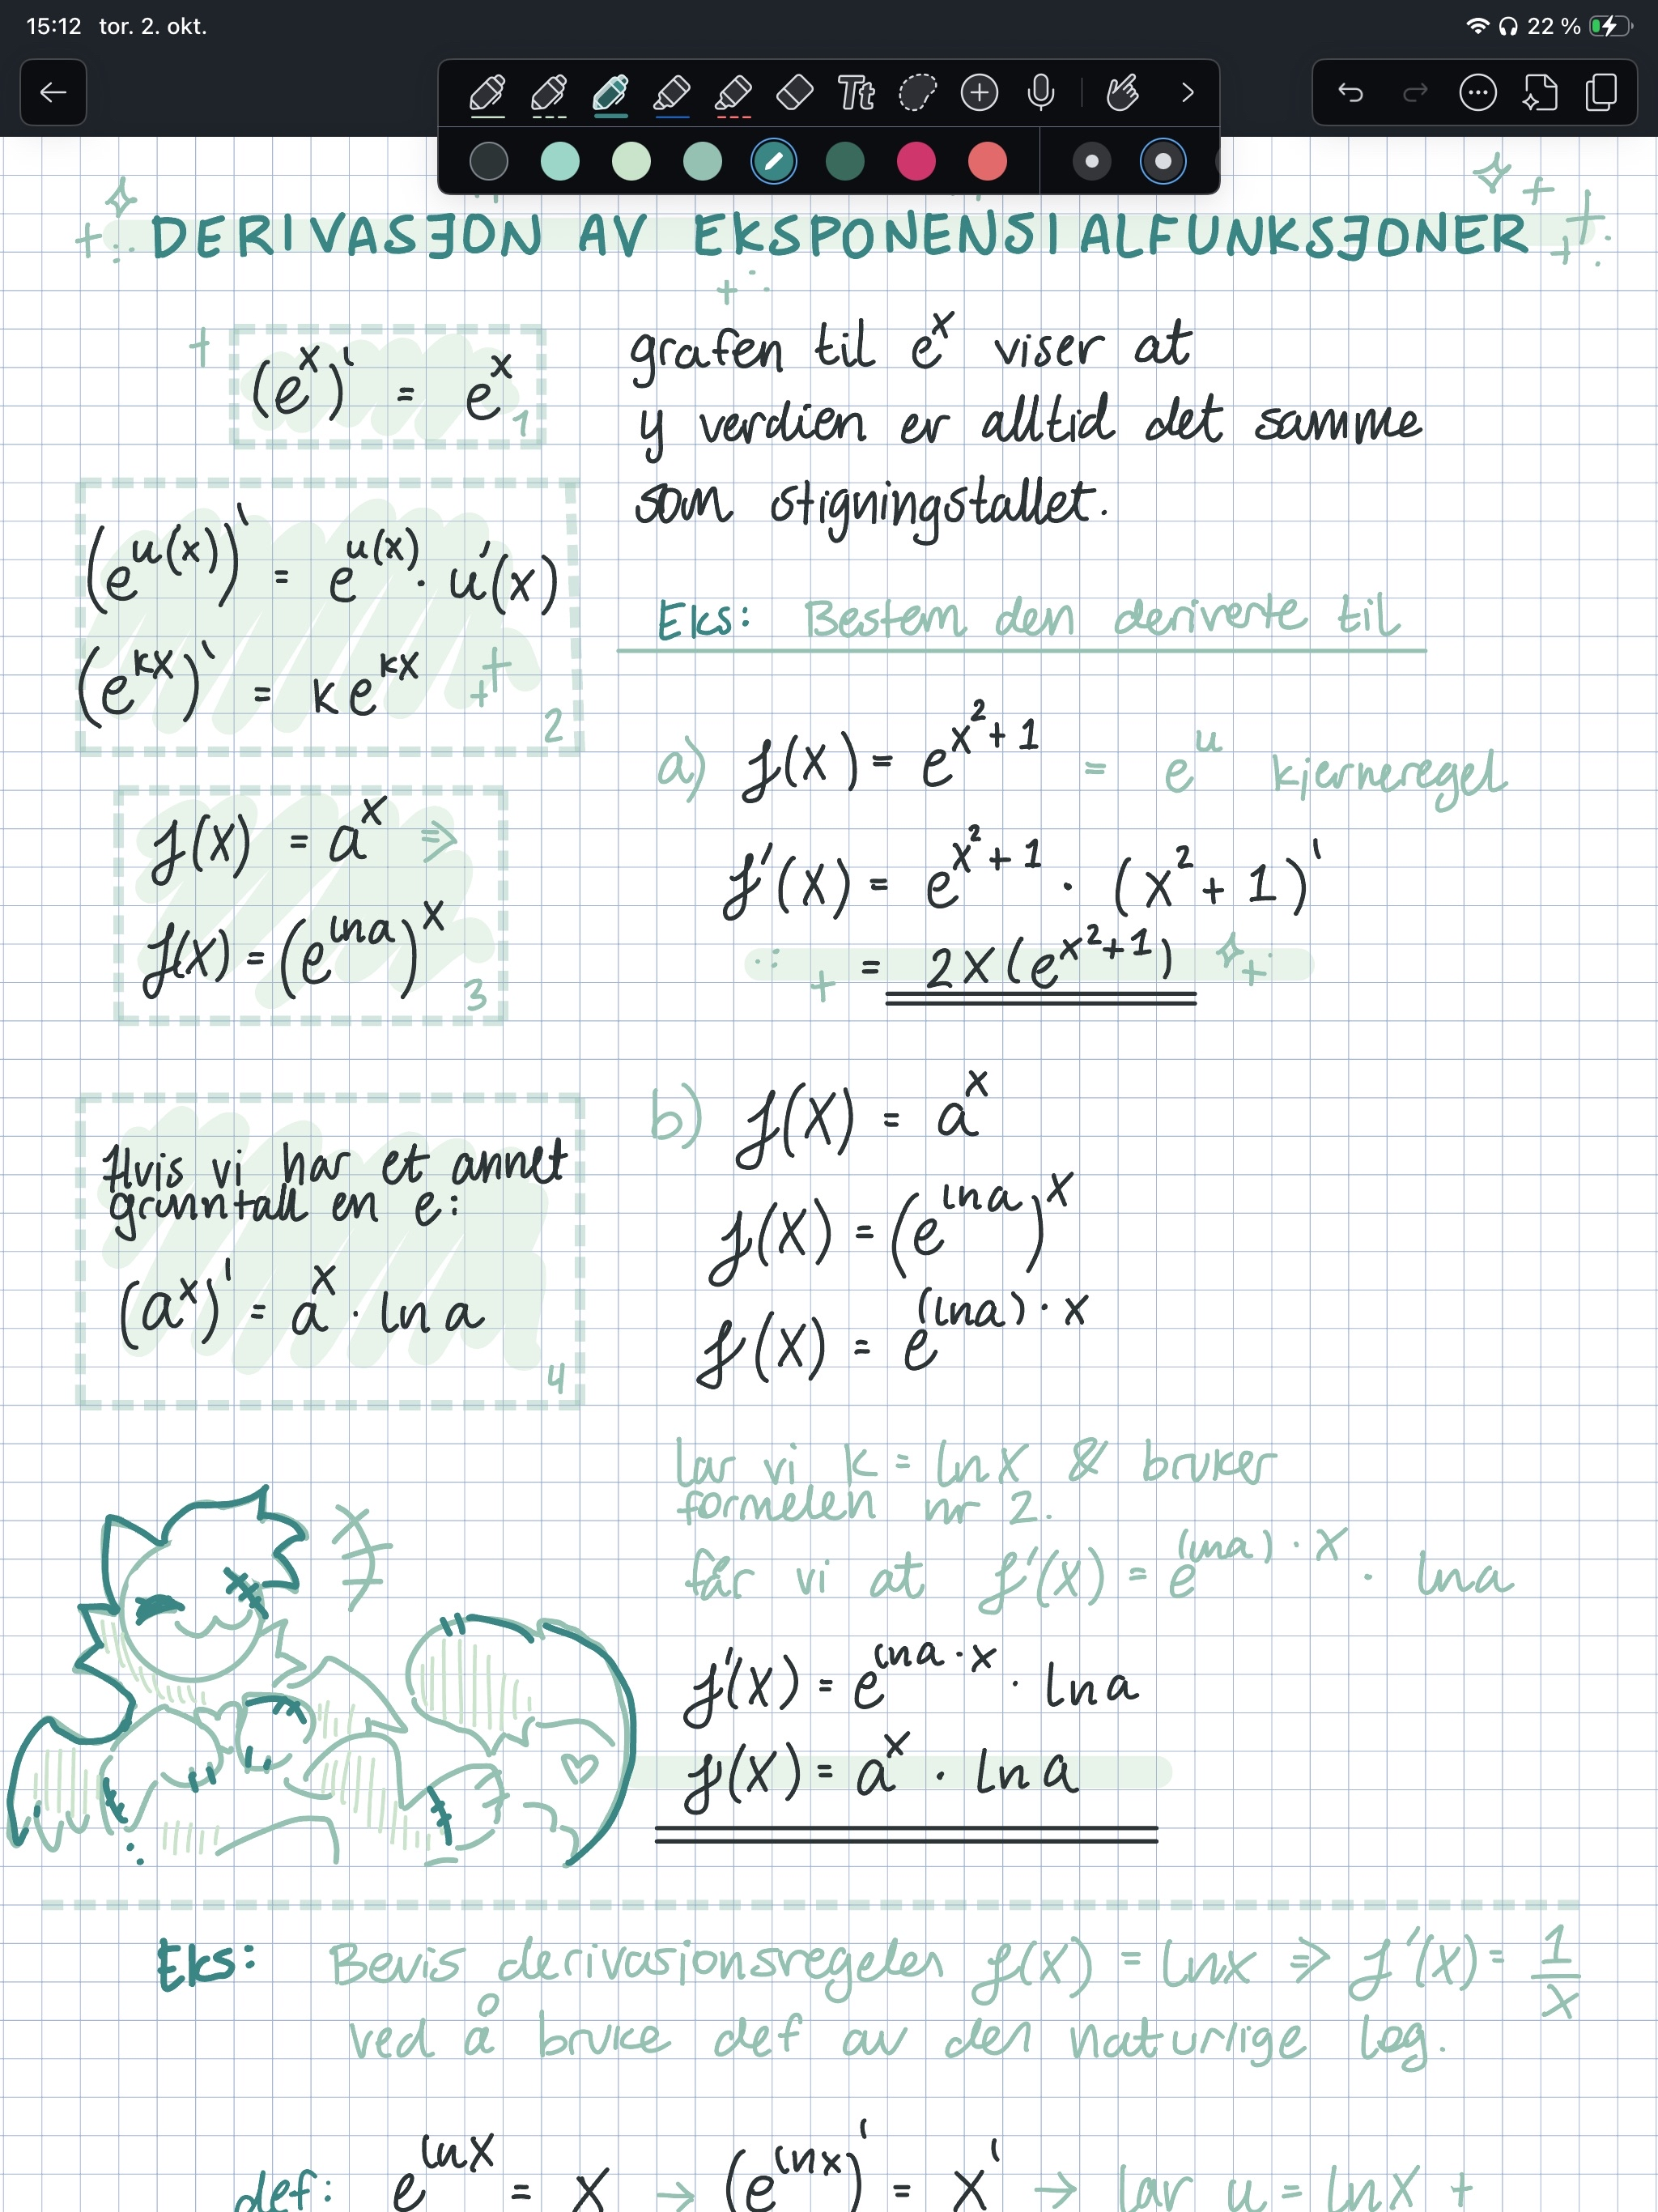 15:12 tor. 2. okt.
22 %
Tt
DERIVASJON AV EKSPONENSIALFUNKSJONER
(e^x)' = e^x
1
(e^u(x))' = e^u(x) · u'(x)
(e^kx)' = ke^kx
2
f(x) = a^x ⇒
f(x) = (e^ln a)^x
3
Hvis vi har et annet
grunntall en e:
(a^x)' = a^x · ln a
4
grafen til e^x viser at
y verdien er alltid det samme
som stigningstallet.
Eks: Bestem den deriverte til
a) f(x) = e^x²+1 = e^u kjerneregel
f'(x) = e^x²+1 · (x²+1)'
= 2x(e^x²+1)
b) f(x) = a^x
f(x) = (e^ln a)^x
f(x) = e^(ln a)·x
Lar vi k = ln x & bruker
formelen nr 2.
får vi at f'(x) = e^(ln a)·x · ln a
f'(x) = e^ln a·x · ln a
f(x) = a^x · ln a
Eks: Bevis derivasjonsregelen f(x) = ln x ⇒ f'(x) = 1/x
ved å bruke def av den naturlige log.
def: e^ln x = x → (e^ln x)' = x' → lar u = ln x +